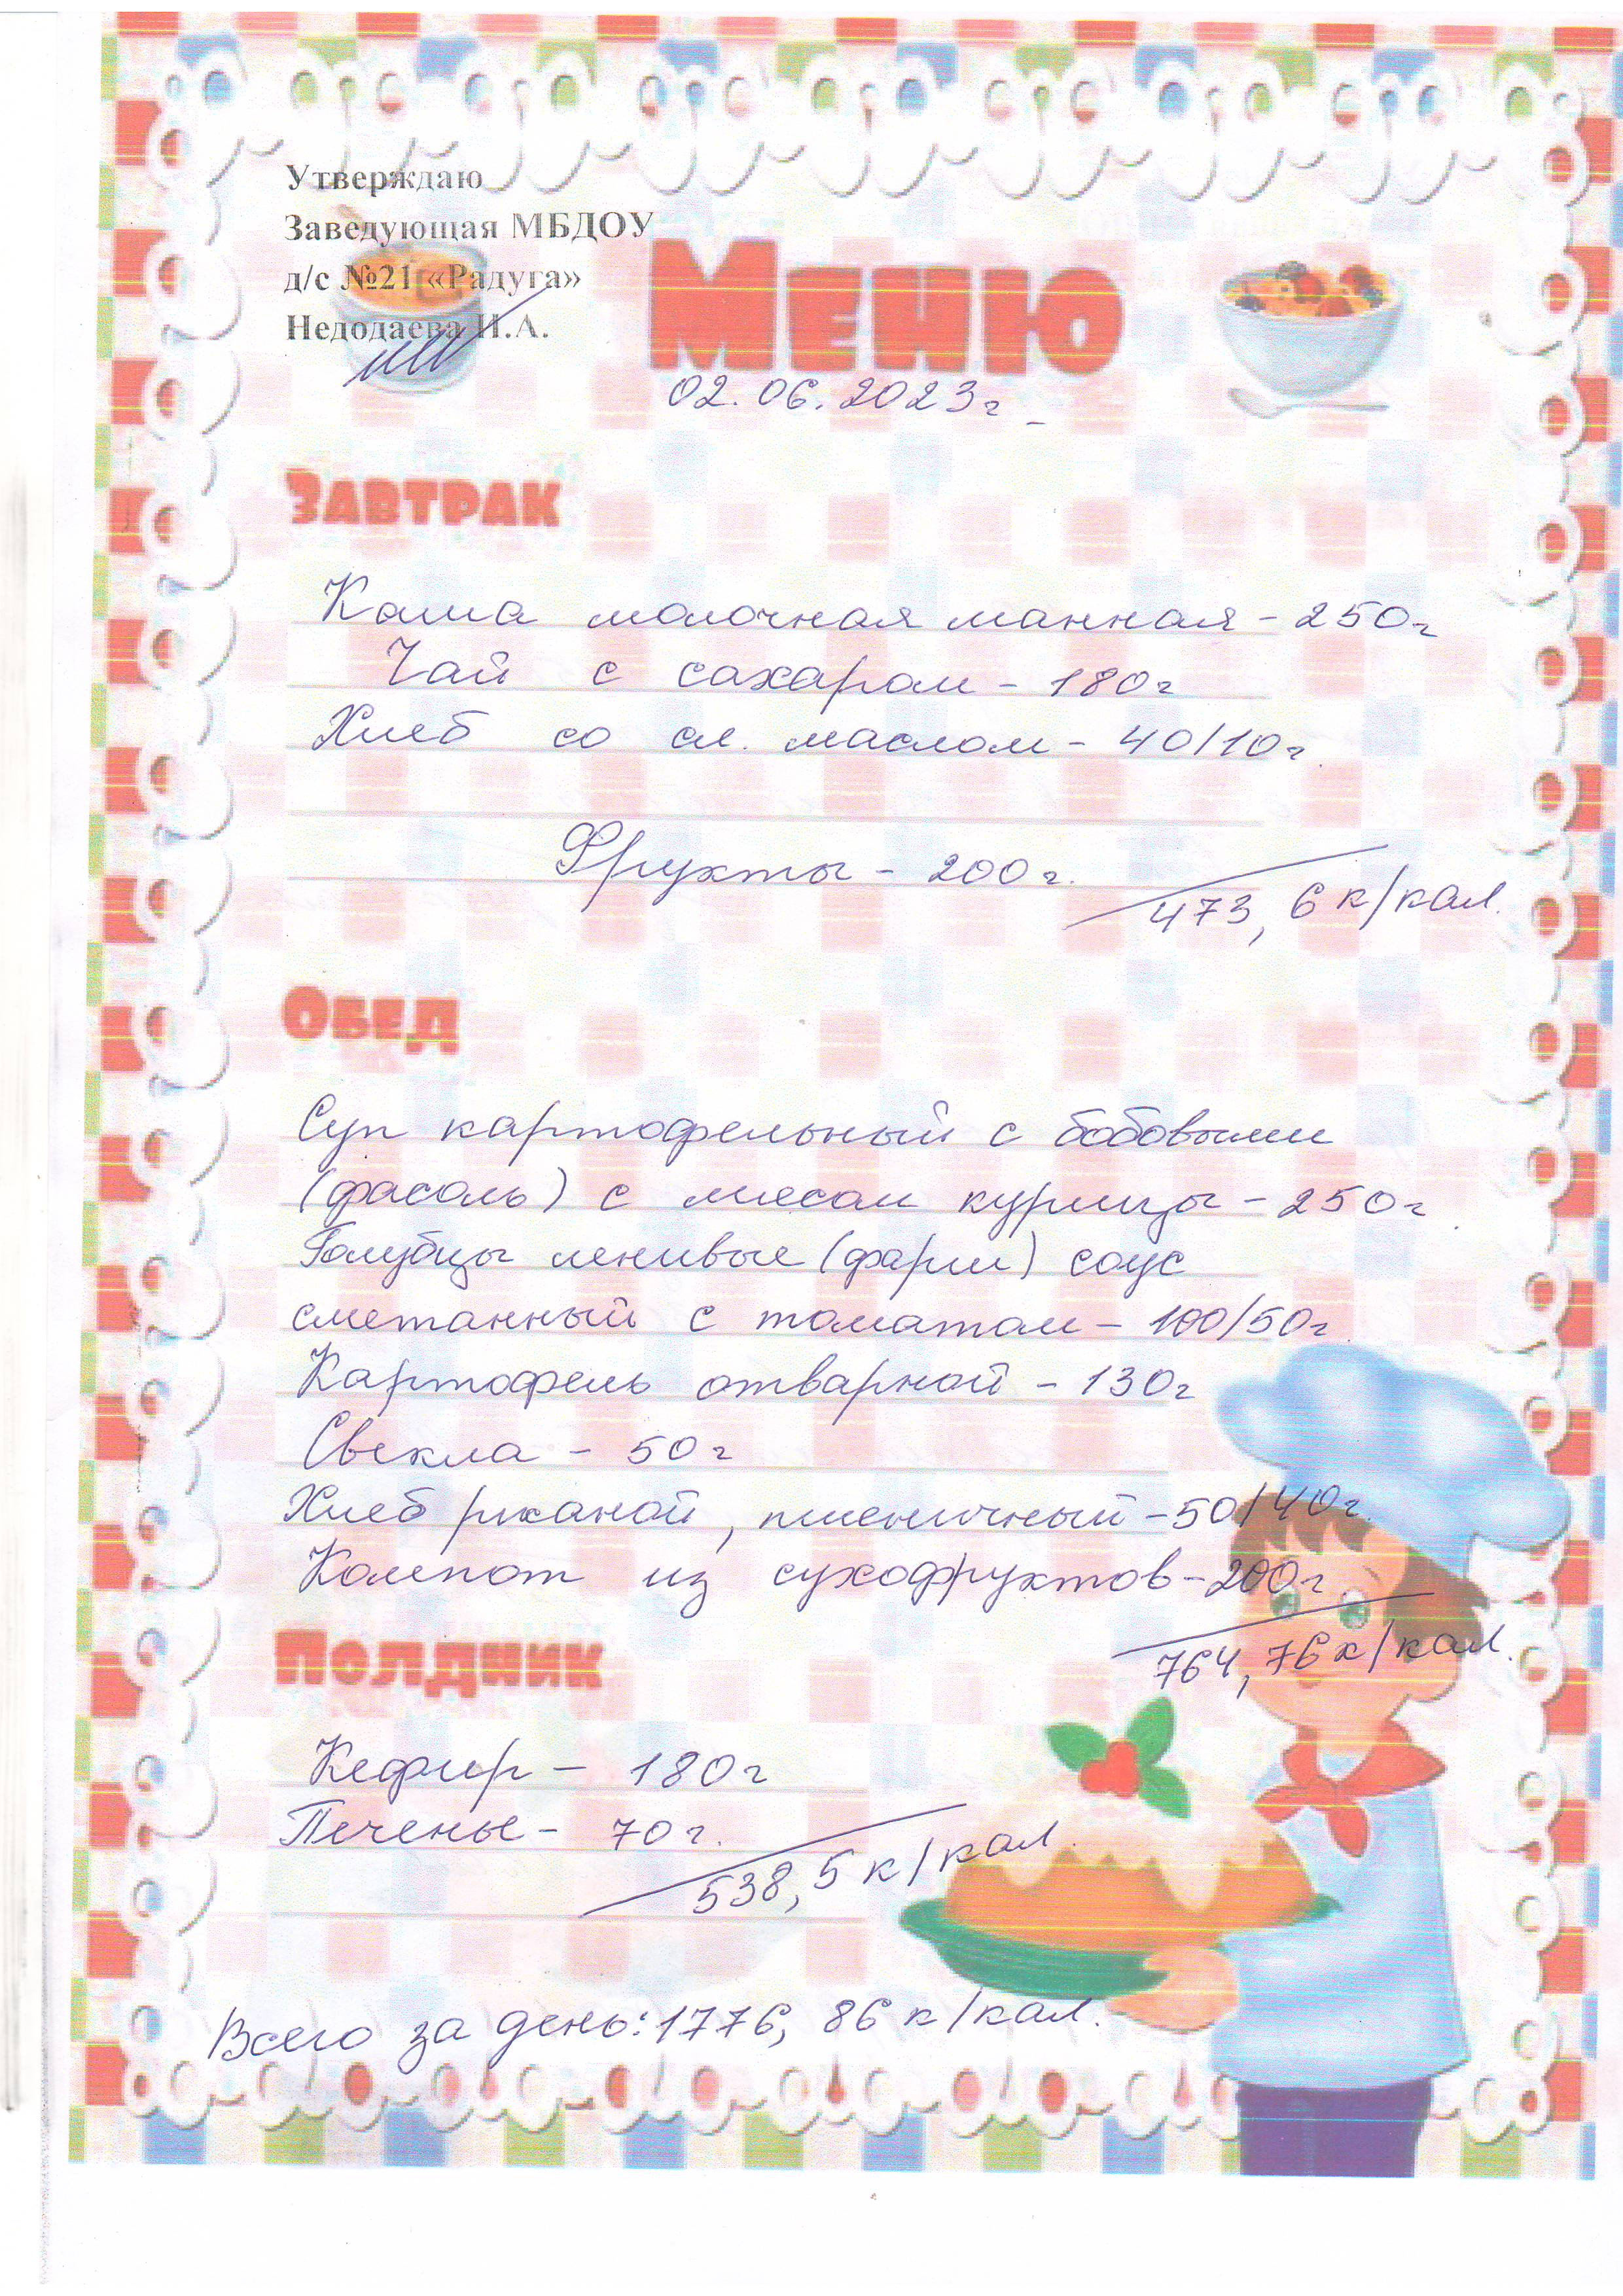 Утверждаю
Заведующая МБДОУ
д/с №21 «Радуга»
Недодаева И.А.
Меню
02.06.2023г
Завтрак
Каша молочная манная - 250г
Чай с сахаром - 180г
Хлеб со сл. маслом - 40/10г.
Фрукты - 200г.
473,6 к/кал.
Обед
Суп картофельный с бобовыми
(фасоль) с мясом курицы - 250г
Голубцы ленивые (фарш) соус
сметанный с томатом - 100/50г.
Картофель отварной - 130г
Свекла - 50г
Хлеб ржаной, пшеничный - 50/40г.
Компот из сухофруктов - 200г
764,76 к/кал.
Полдник
Кефир - 180г
Печенье - 70г.
538,5 к/кал.
Всего за день: 1776,86 к/кал.